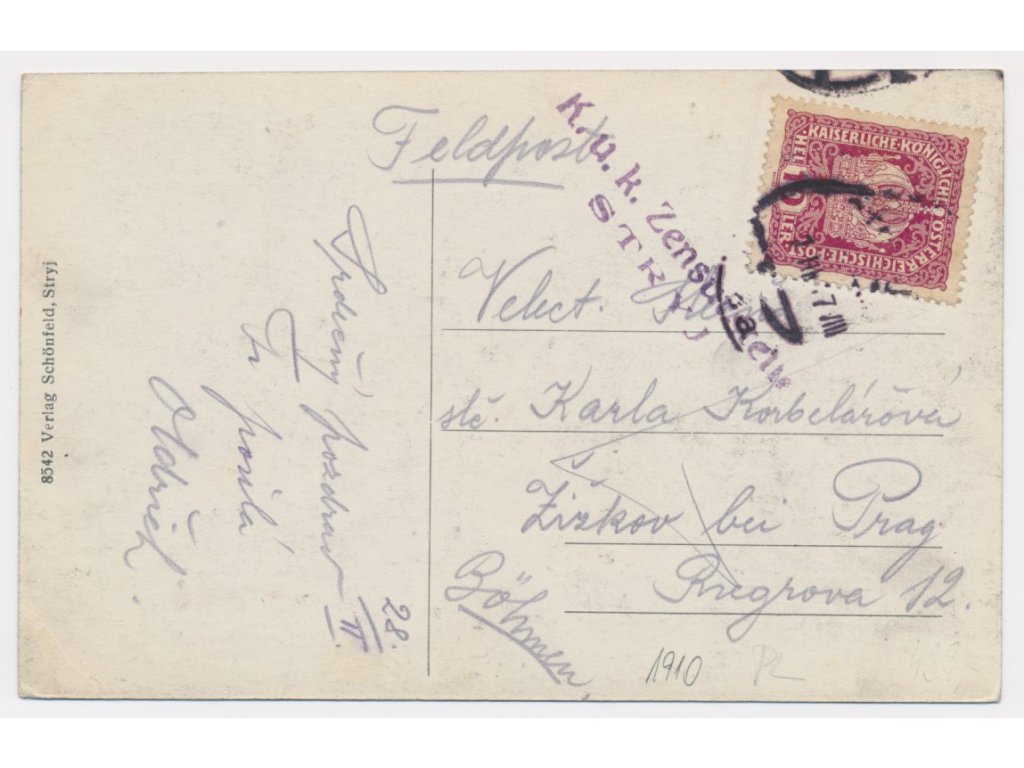 Feldpost
K.u.k. Zensur
STRYJ
KAISERLICHE KÖNIGLICHE ÖSTERREICHISCHE POST
HELLER
10
Velect.
slč. Karla Korbelářová
Žižkov bei Prag
Riegrova 12.
Böhmen
Srdečný pozdrav
Ti posílá
Oldřich.
28.
II.
1910
8542 Verlag Schönfeld, Stryj